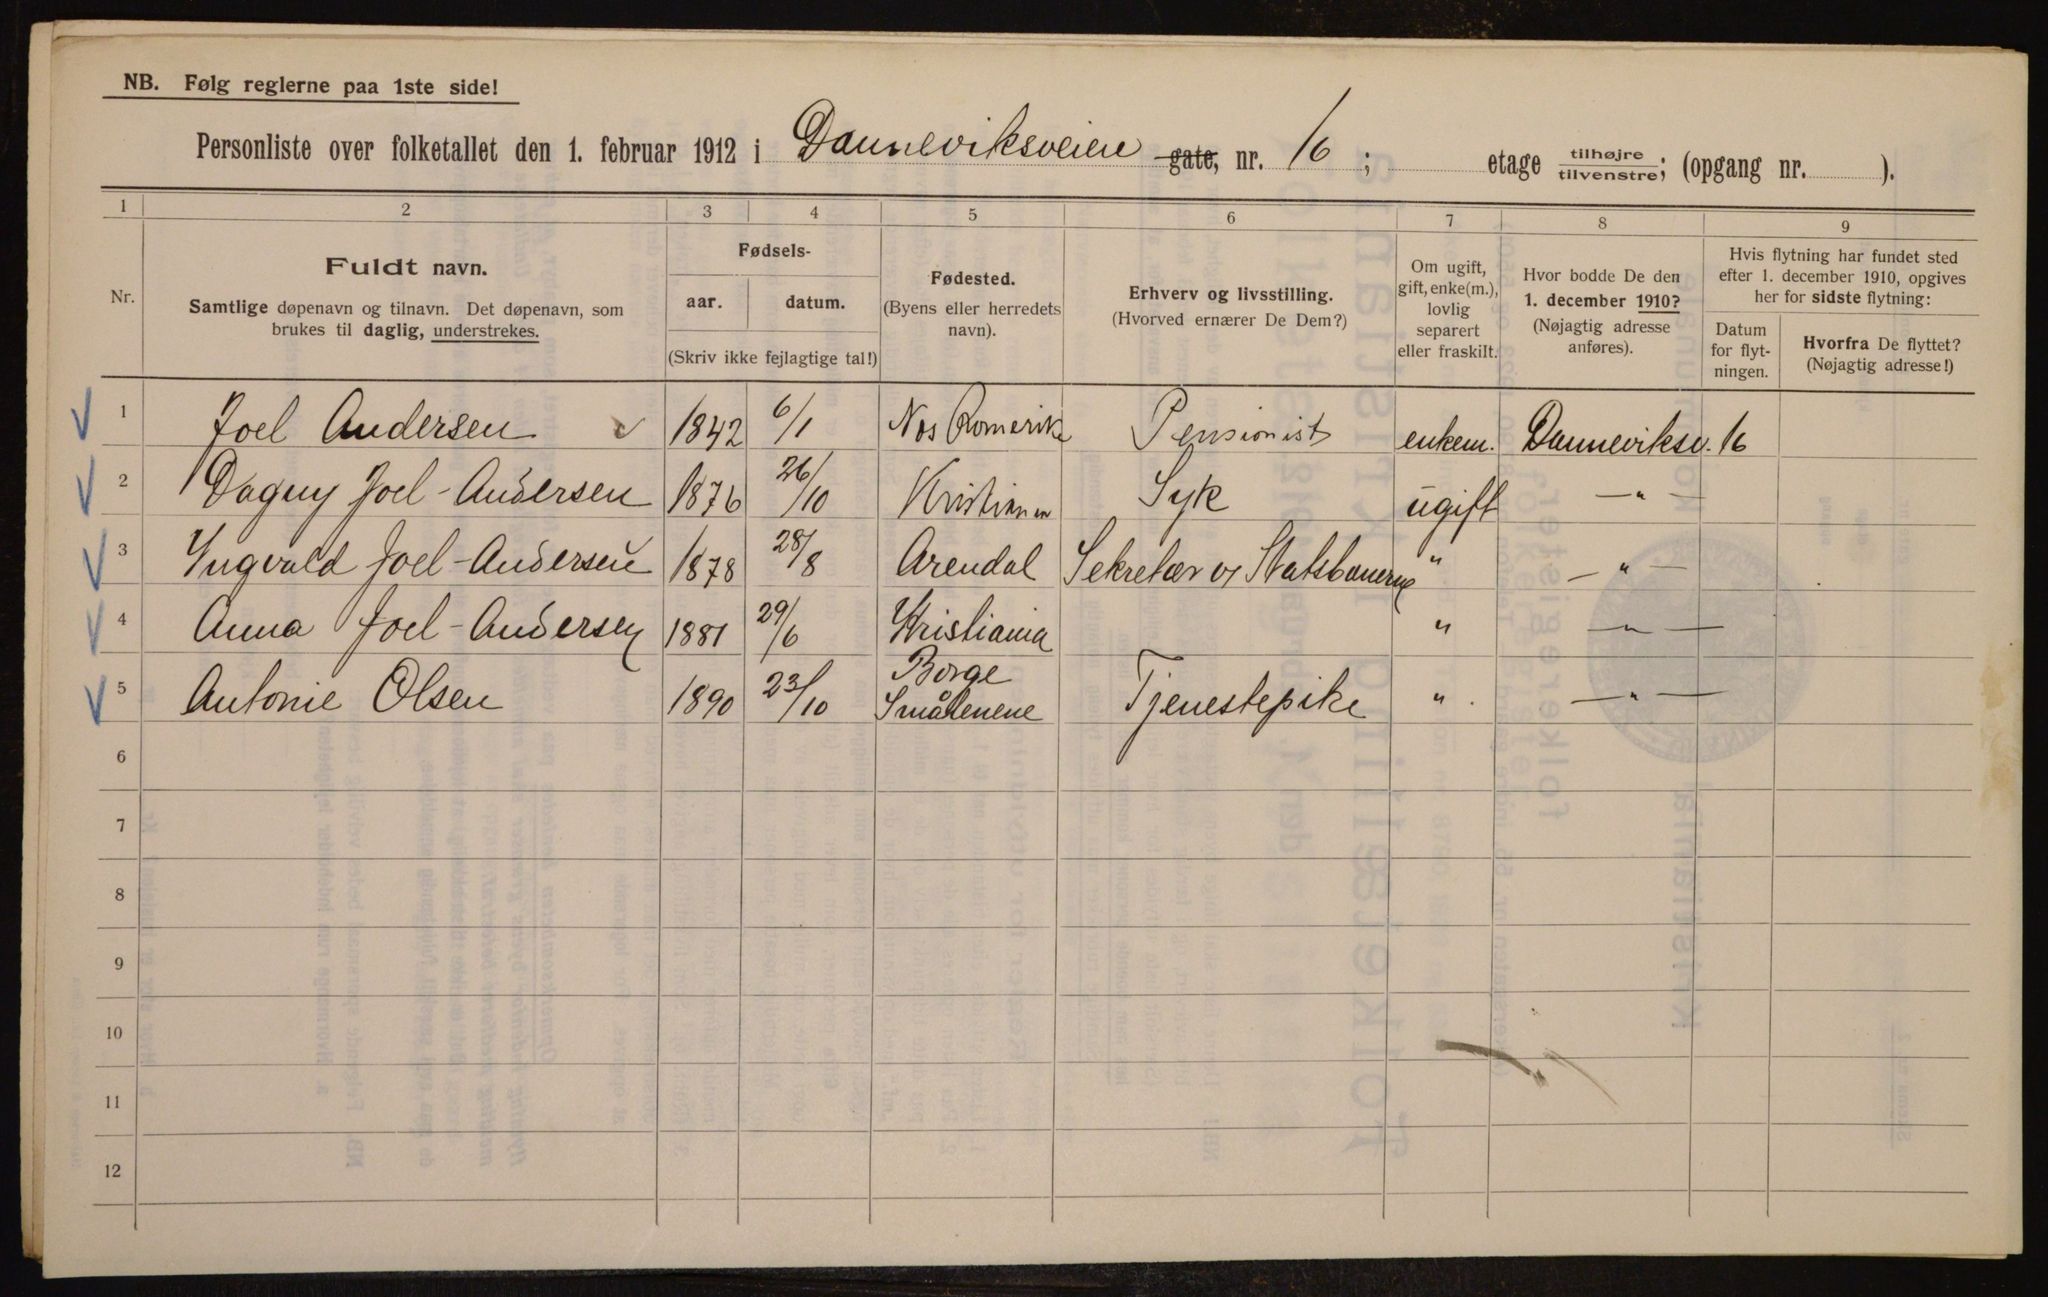 NB. Følg reglerne paa 1ste side!
Personliste over folketallet den 1. februar 1912 i Danneviksveien gate, nr. 16; etage tilhøjre/tilvenstre; (opgang nr. ).
1 2 3 4 5 6 7 8 9
Nr.
Fuldt navn.
Samtlige døpenavn og tilnavn. Det døpenavn, som
brukes til daglig, understrekes.
Fødsels-
aar. datum.
(Skriv ikke fejlagtige tal!)
Fødested.
(Byens eller herredets
navn).
Erhverv og livsstilling.
(Hvorved ernærer De Dem?)
Om ugift,
gift, enke(m.),
lovlig
separert
eller fraskilt.
Hvor bodde De den
1. december 1910?
(Nøjagtig adresse
anføres).
Hvis flytning har fundet sted
efter 1. december 1910, opgives
her for sidste flytning:
Datum
for flyt-
ningen.
Hvorfra De flyttet?
(Nøjagtig adresse!)
1 Joel Andersen 1842 6/1 Nes Romerike Pensionist enkem. Danneviksv. 16
2 Dagny Joel-Andersen 1876 26/10 Kristiania Syk ugift —"—
3 Yngvald Joel-Andersen 1878 28/8 Arendal Sekretær v/ Statsbanerne " —"—
4 Anna Joel-Andersen 1881 29/6 Kristiania " —"—
5 Antonie Olsen 1890 23/10 Borge Smålenene Tjenestepike " —"—
6
7
8
9
10
11
12